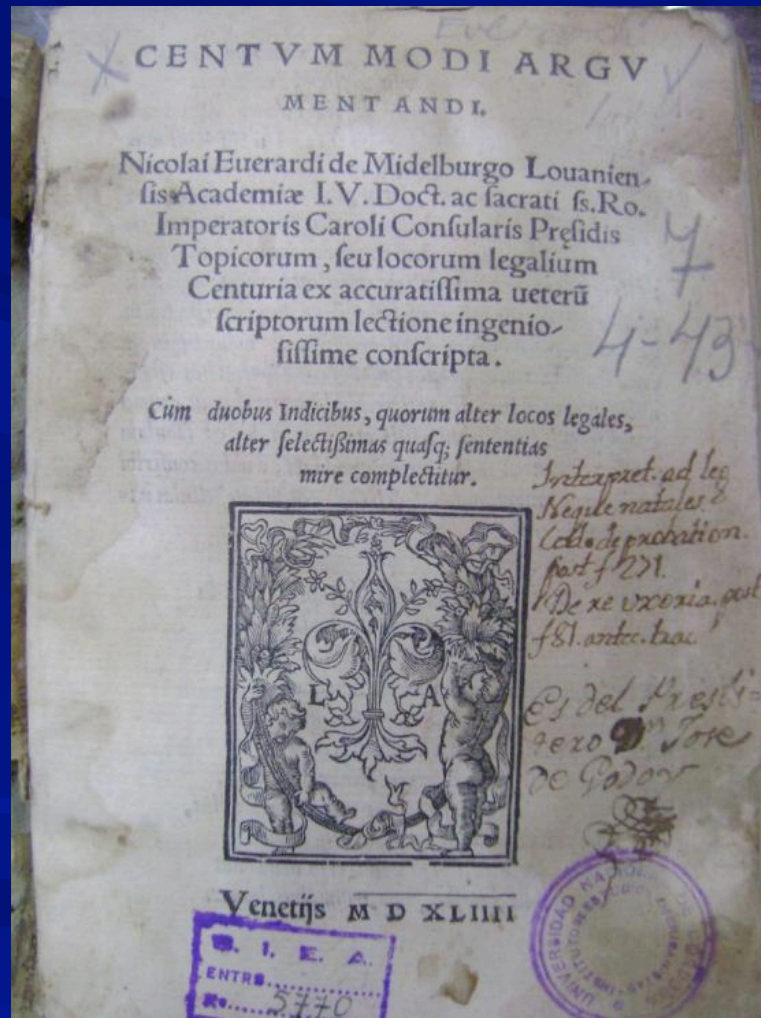 CENTVM MODI ARGV
MENTANDI.
Nicolai Euerardi de Midelburgo Louanien-
sis Academiæ I.V. Doct. ac sacrati ss. Ro.
Imperatoris Caroli Consularis Pręsidis
Topicorum, seu locorum legalium
Centuria ex accuratissima ueterū
scriptorum lectione ingenio-
sissime conscripta.
7
4-43
Cùm duobus Indicibus, quorum alter locos legales,
alter selectißimas quasq; sententias
mire complectitur.
Interpret. ad leg
Neque natales
Cod. de probation.
post f 271.
De re vxoria. post
f 81. antec. trac
L A
Es del Presbi-
tero Dn Jose
de Godoy
Venetijs M D XLIIII
B. I. E. A.
ENTR
No 5770
UNIVERSIDAD NACIONAL DE
INSTITUTO DE ESTUDIOS AMERICANISTAS